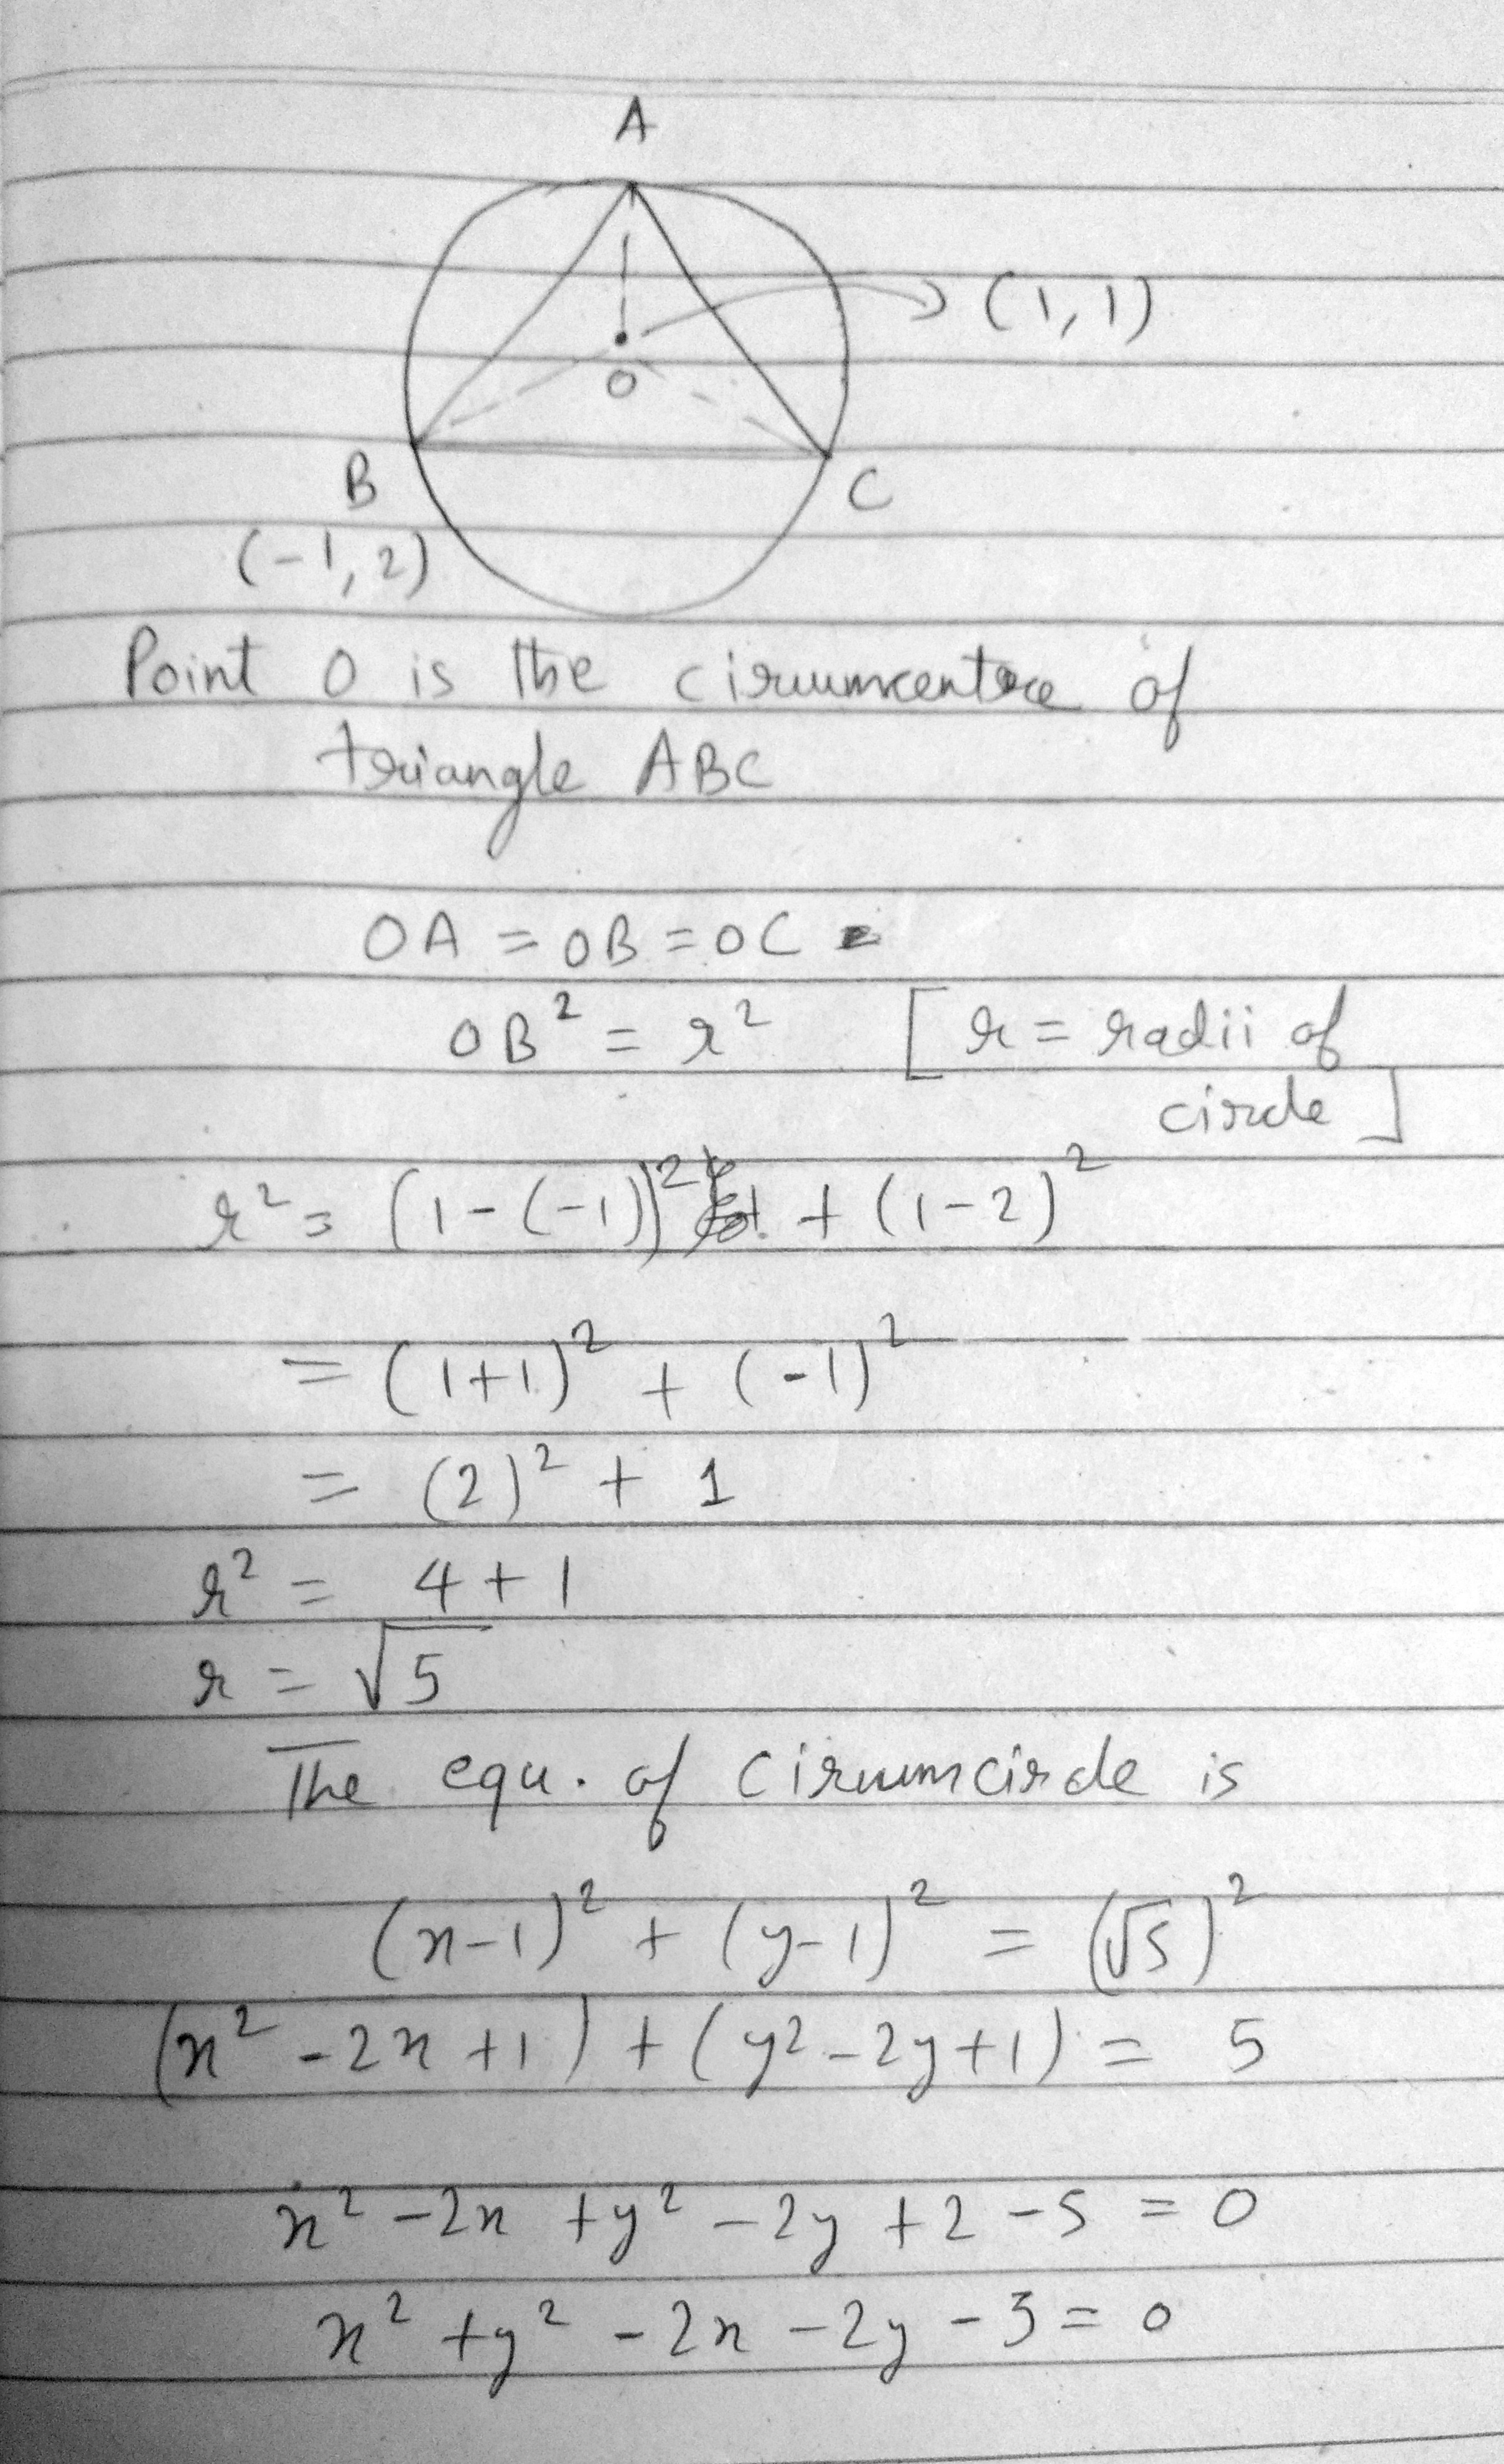 A
(1,1)
O
B
C
(-1,2)
Point O is the circumcentre of
triangle ABC
OA = OB = OC =
OB² = r² [r = radii of
circle]
r² = (1-(-1))² + (1-2)²
= (1+1)² + (-1)²
= (2)² + 1
r² = 4+1
r = √5
The equ. of circumcircle is
(x-1)² + (y-1)² = (√5)²
(x² -2x +1) + (y² -2y +1) = 5
x² -2x +y² -2y +2 -5 = 0
x² +y² -2x -2y -3 = 0